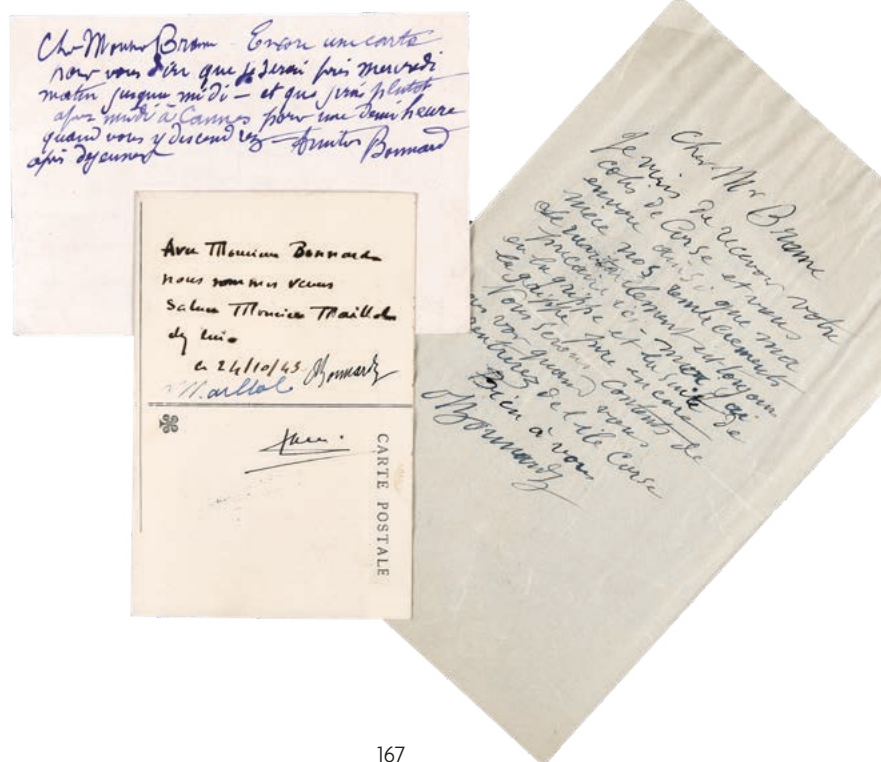 Cher Monsieur Brame - Encore une carte
pour vous dire que je serai pris mercredi
matin jusque midi - et que j'irai plutôt
après midi à Cannes pour une demi heure
quand vous y descendrez
après dejeuner Bonnard
Avec Monsieur Bonnard
nous sommes venus
Saluer Monsieur Maillol
le 24/10/43 Bonnard
Maillol
CARTE POSTALE
Cher Mr Brame
Je viens de recevoir votre
colis de Corse et vous
envoie ainsi que ma
nièce nos remerciements
Le ravitaillement est toujours
précaire ici - moi j'ai
eu la grippe et la suite de
la grippe pire encore
Nous serons contents de
vous voir quand vous
rentrerez de l'île Corse
Bien à vous
Bonnard
167